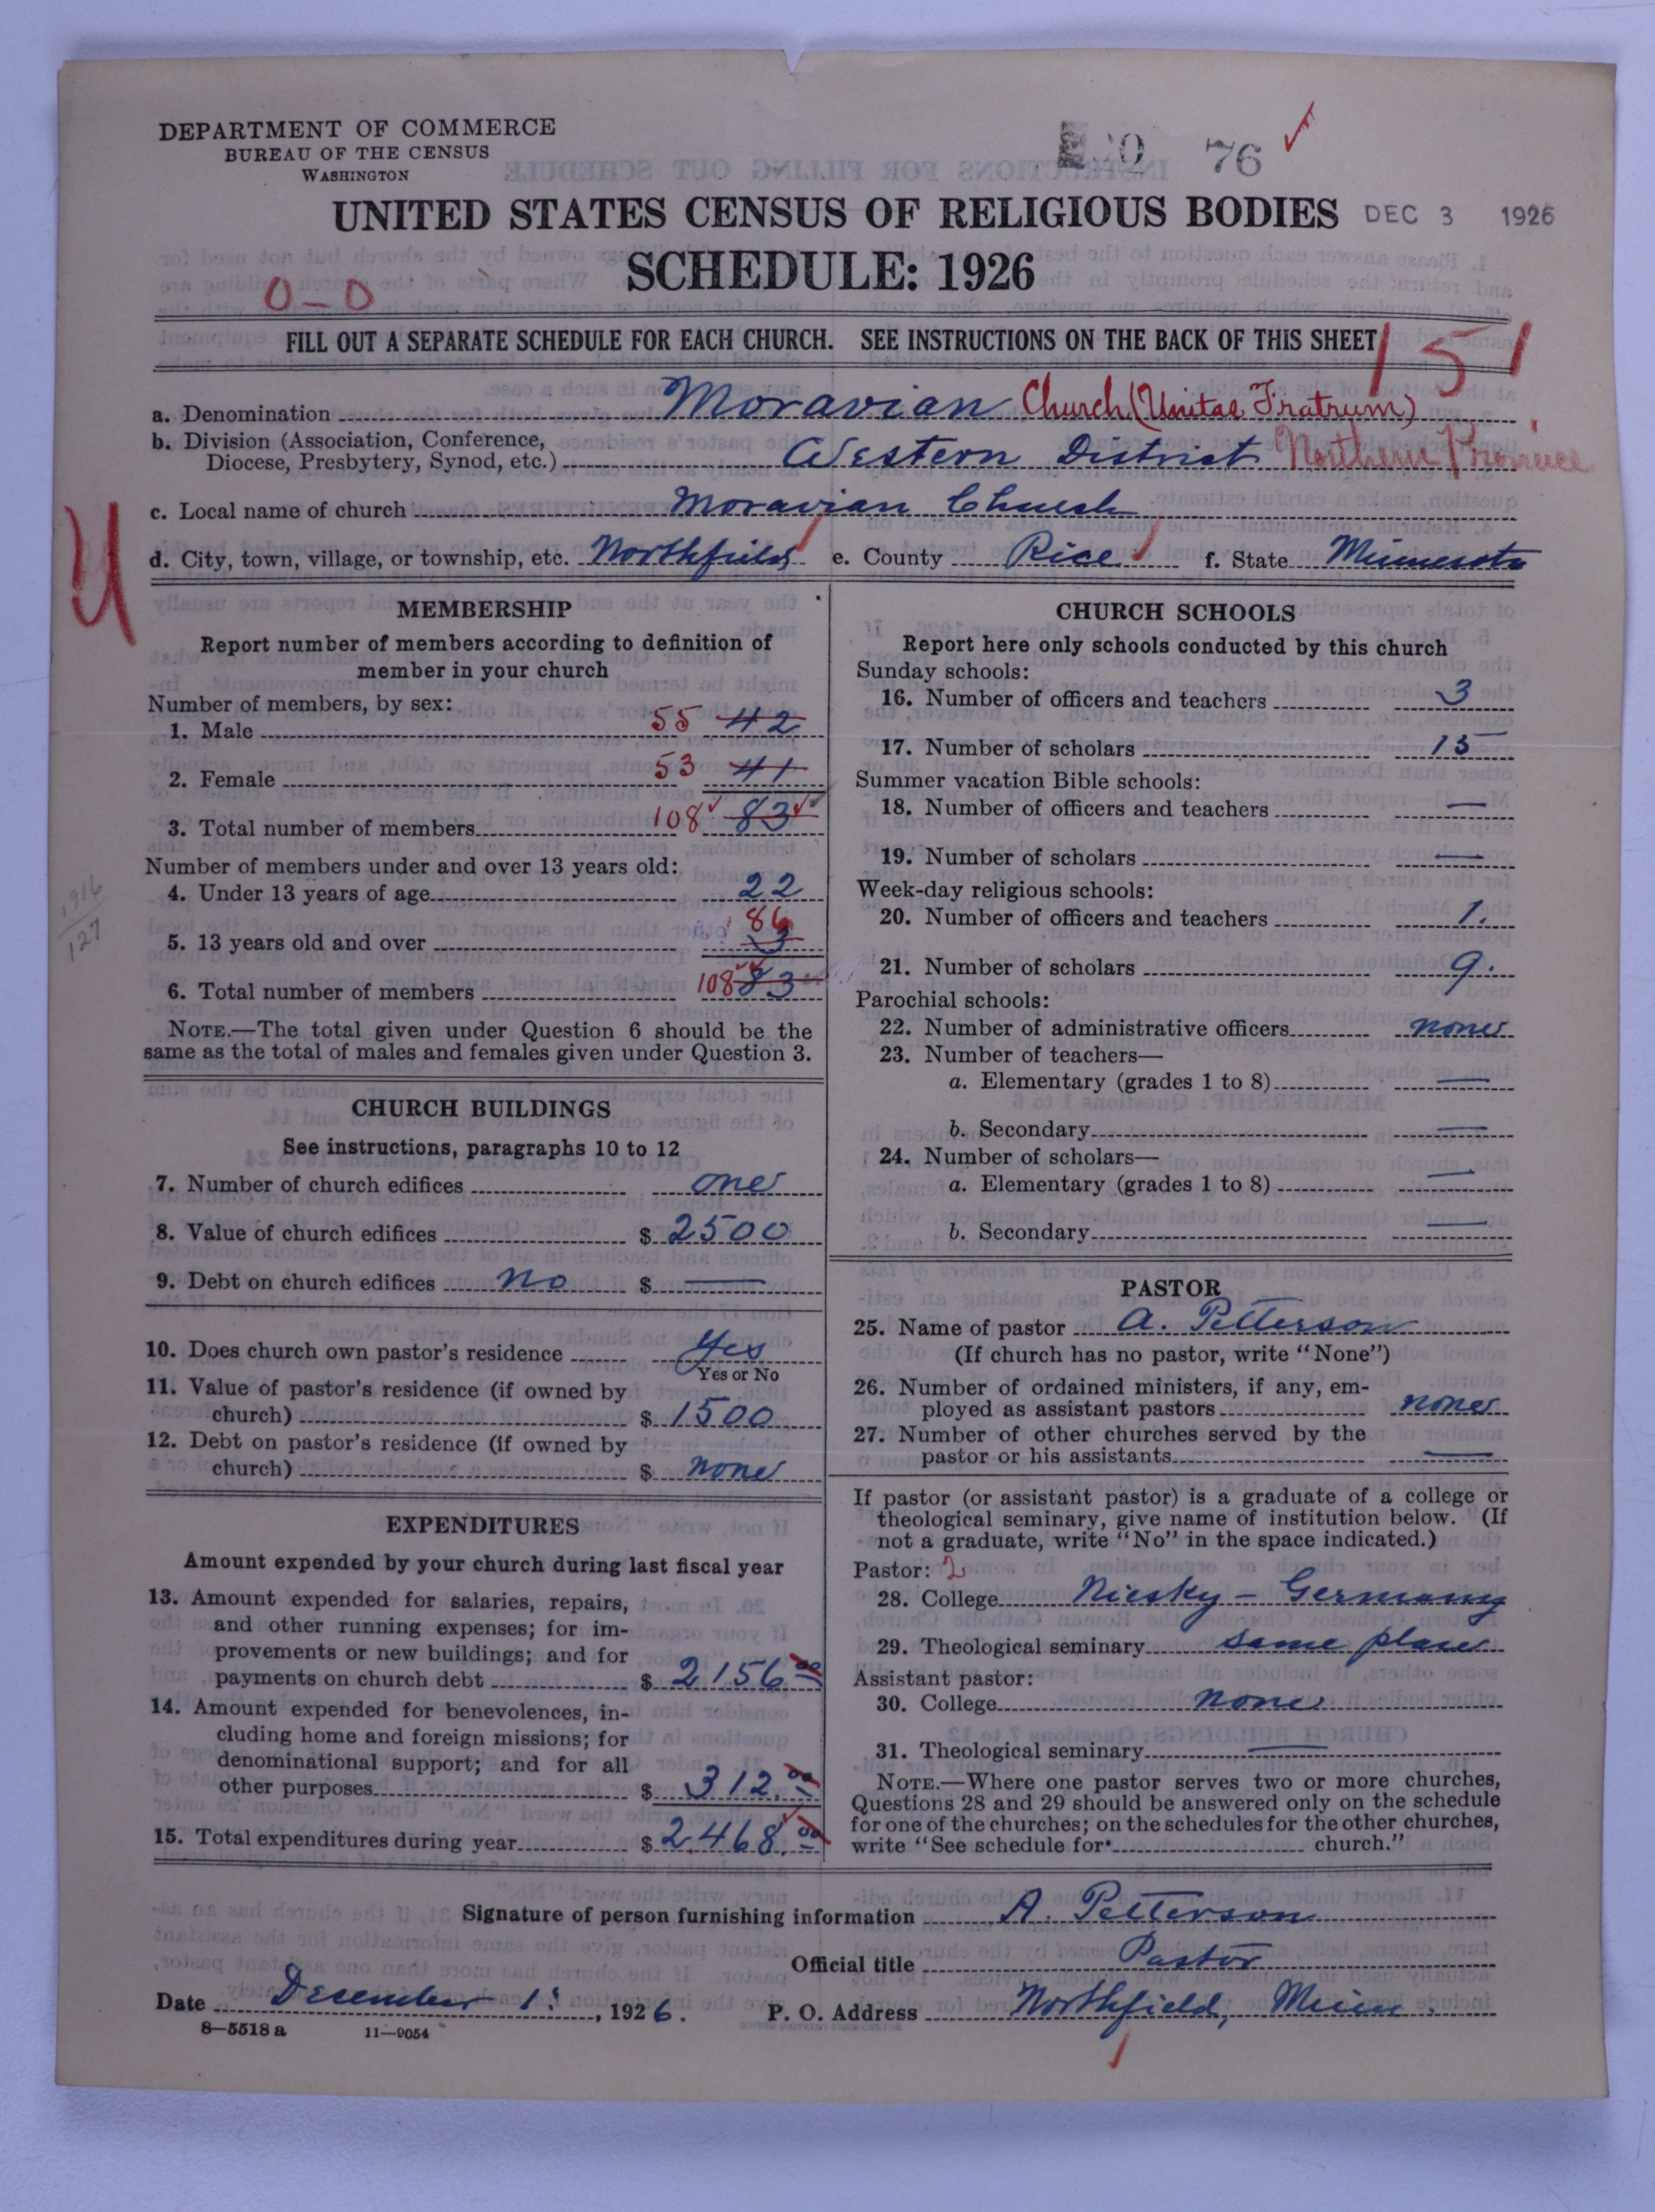 DEPARTMENT OF COMMERCE
BUREAU OF THE CENSUS
WASHINGTON
76
UNITED STATES CENSUS OF RELIGIOUS BODIES DEC 3 1926
SCHEDULE: 1926
0-0
FILL OUT A SEPARATE SCHEDULE FOR EACH CHURCH. SEE INSTRUCTIONS ON THE BACK OF THIS SHEET
151
a. Denomination Moravian Church (Unitas Fratrum)
b. Division (Association, Conference,
Diocese, Presbytery, Synod, etc.) Western District Northern Province
c. Local name of church Moravian Church
d. City, town, village, or township, etc. Northfield e. County Rice f. State Minnesota
MEMBERSHIP
Report number of members according to definition of
member in your church
Number of members, by sex:
1. Male 55 42
2. Female 53 41
3. Total number of members 108 83
Number of members under and over 13 years old:
4. Under 13 years of age 22
5. 13 years old and over 86
6. Total number of members 108 83
1916
127
NOTE.—The total given under Question 6 should be the
same as the total of males and females given under Question 3.
CHURCH BUILDINGS
See instructions, paragraphs 10 to 12
7. Number of church edifices one
8. Value of church edifices $ 2500
9. Debt on church edifices no $ —
10. Does church own pastor's residence Yes
Yes or No
11. Value of pastor's residence (if owned by
church) $ 1500
12. Debt on pastor's residence (if owned by
church) $ none
EXPENDITURES
Amount expended by your church during last fiscal year
13. Amount expended for salaries, repairs,
and other running expenses; for im-
provements or new buildings; and for
payments on church debt $ 2156.00
14. Amount expended for benevolences, in-
cluding home and foreign missions; for
denominational support; and for all
other purposes $ 312.00
15. Total expenditures during year $ 2468.00
CHURCH SCHOOLS
Report here only schools conducted by this church
Sunday schools:
16. Number of officers and teachers 3
17. Number of scholars 15
Summer vacation Bible schools:
18. Number of officers and teachers —
19. Number of scholars —
Week-day religious schools:
20. Number of officers and teachers 1.
21. Number of scholars 9.
Parochial schools:
22. Number of administrative officers none
23. Number of teachers—
a. Elementary (grades 1 to 8) —
b. Secondary —
24. Number of scholars—
a. Elementary (grades 1 to 8) —
b. Secondary —
PASTOR
25. Name of pastor A. Petterson
(If church has no pastor, write "None")
26. Number of ordained ministers, if any, em-
ployed as assistant pastors none
27. Number of other churches served by the
pastor or his assistants —
If pastor (or assistant pastor) is a graduate of a college or
theological seminary, give name of institution below. (If
not a graduate, write "No" in the space indicated.)
Pastor: 2
28. College Niesky - Germany
29. Theological seminary same place
Assistant pastor:
30. College none
31. Theological seminary —
NOTE.—Where one pastor serves two or more churches,
Questions 28 and 29 should be answered only on the schedule
for one of the churches; on the schedules for the other churches,
write "See schedule for church."
Signature of person furnishing information A. Petterson
Official title Pastor
Date December 1. , 1926. P. O. Address Northfield, Minn.
8—5518 a 11—9054